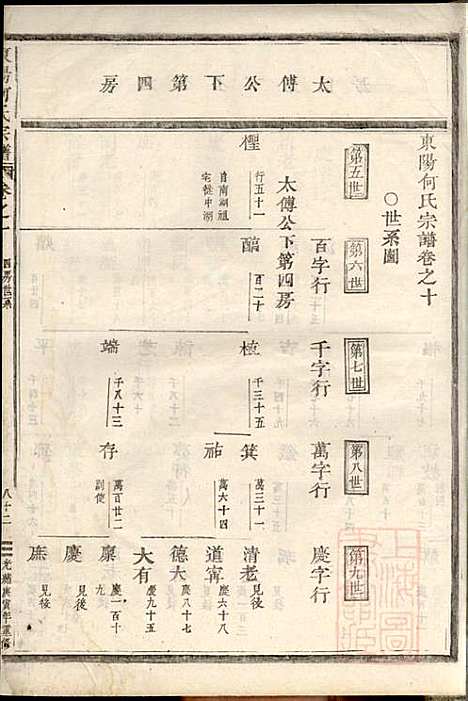 太傅公下第四房
東陽何氏宗譜卷之十
○世系圖
第五世
第六世
百字行
第七世
千字行
第八世
萬字行
第九世
慶字行
太傅公下第四房
行五十一
自南湖祖
宅徙中湖
百二十
植
千三十五
端
千八十三
箕
萬三十一
祐
萬六十四
存
萬百廿二
副使
清老
見後
道甯
慶六十八
德大
慶八十七
大有
慶九十五
稟
慶一百十
九
慶
見後
庶
見後
東陽何氏宗譜
卷之十
四房世系
八十二
光緒庚寅年重修